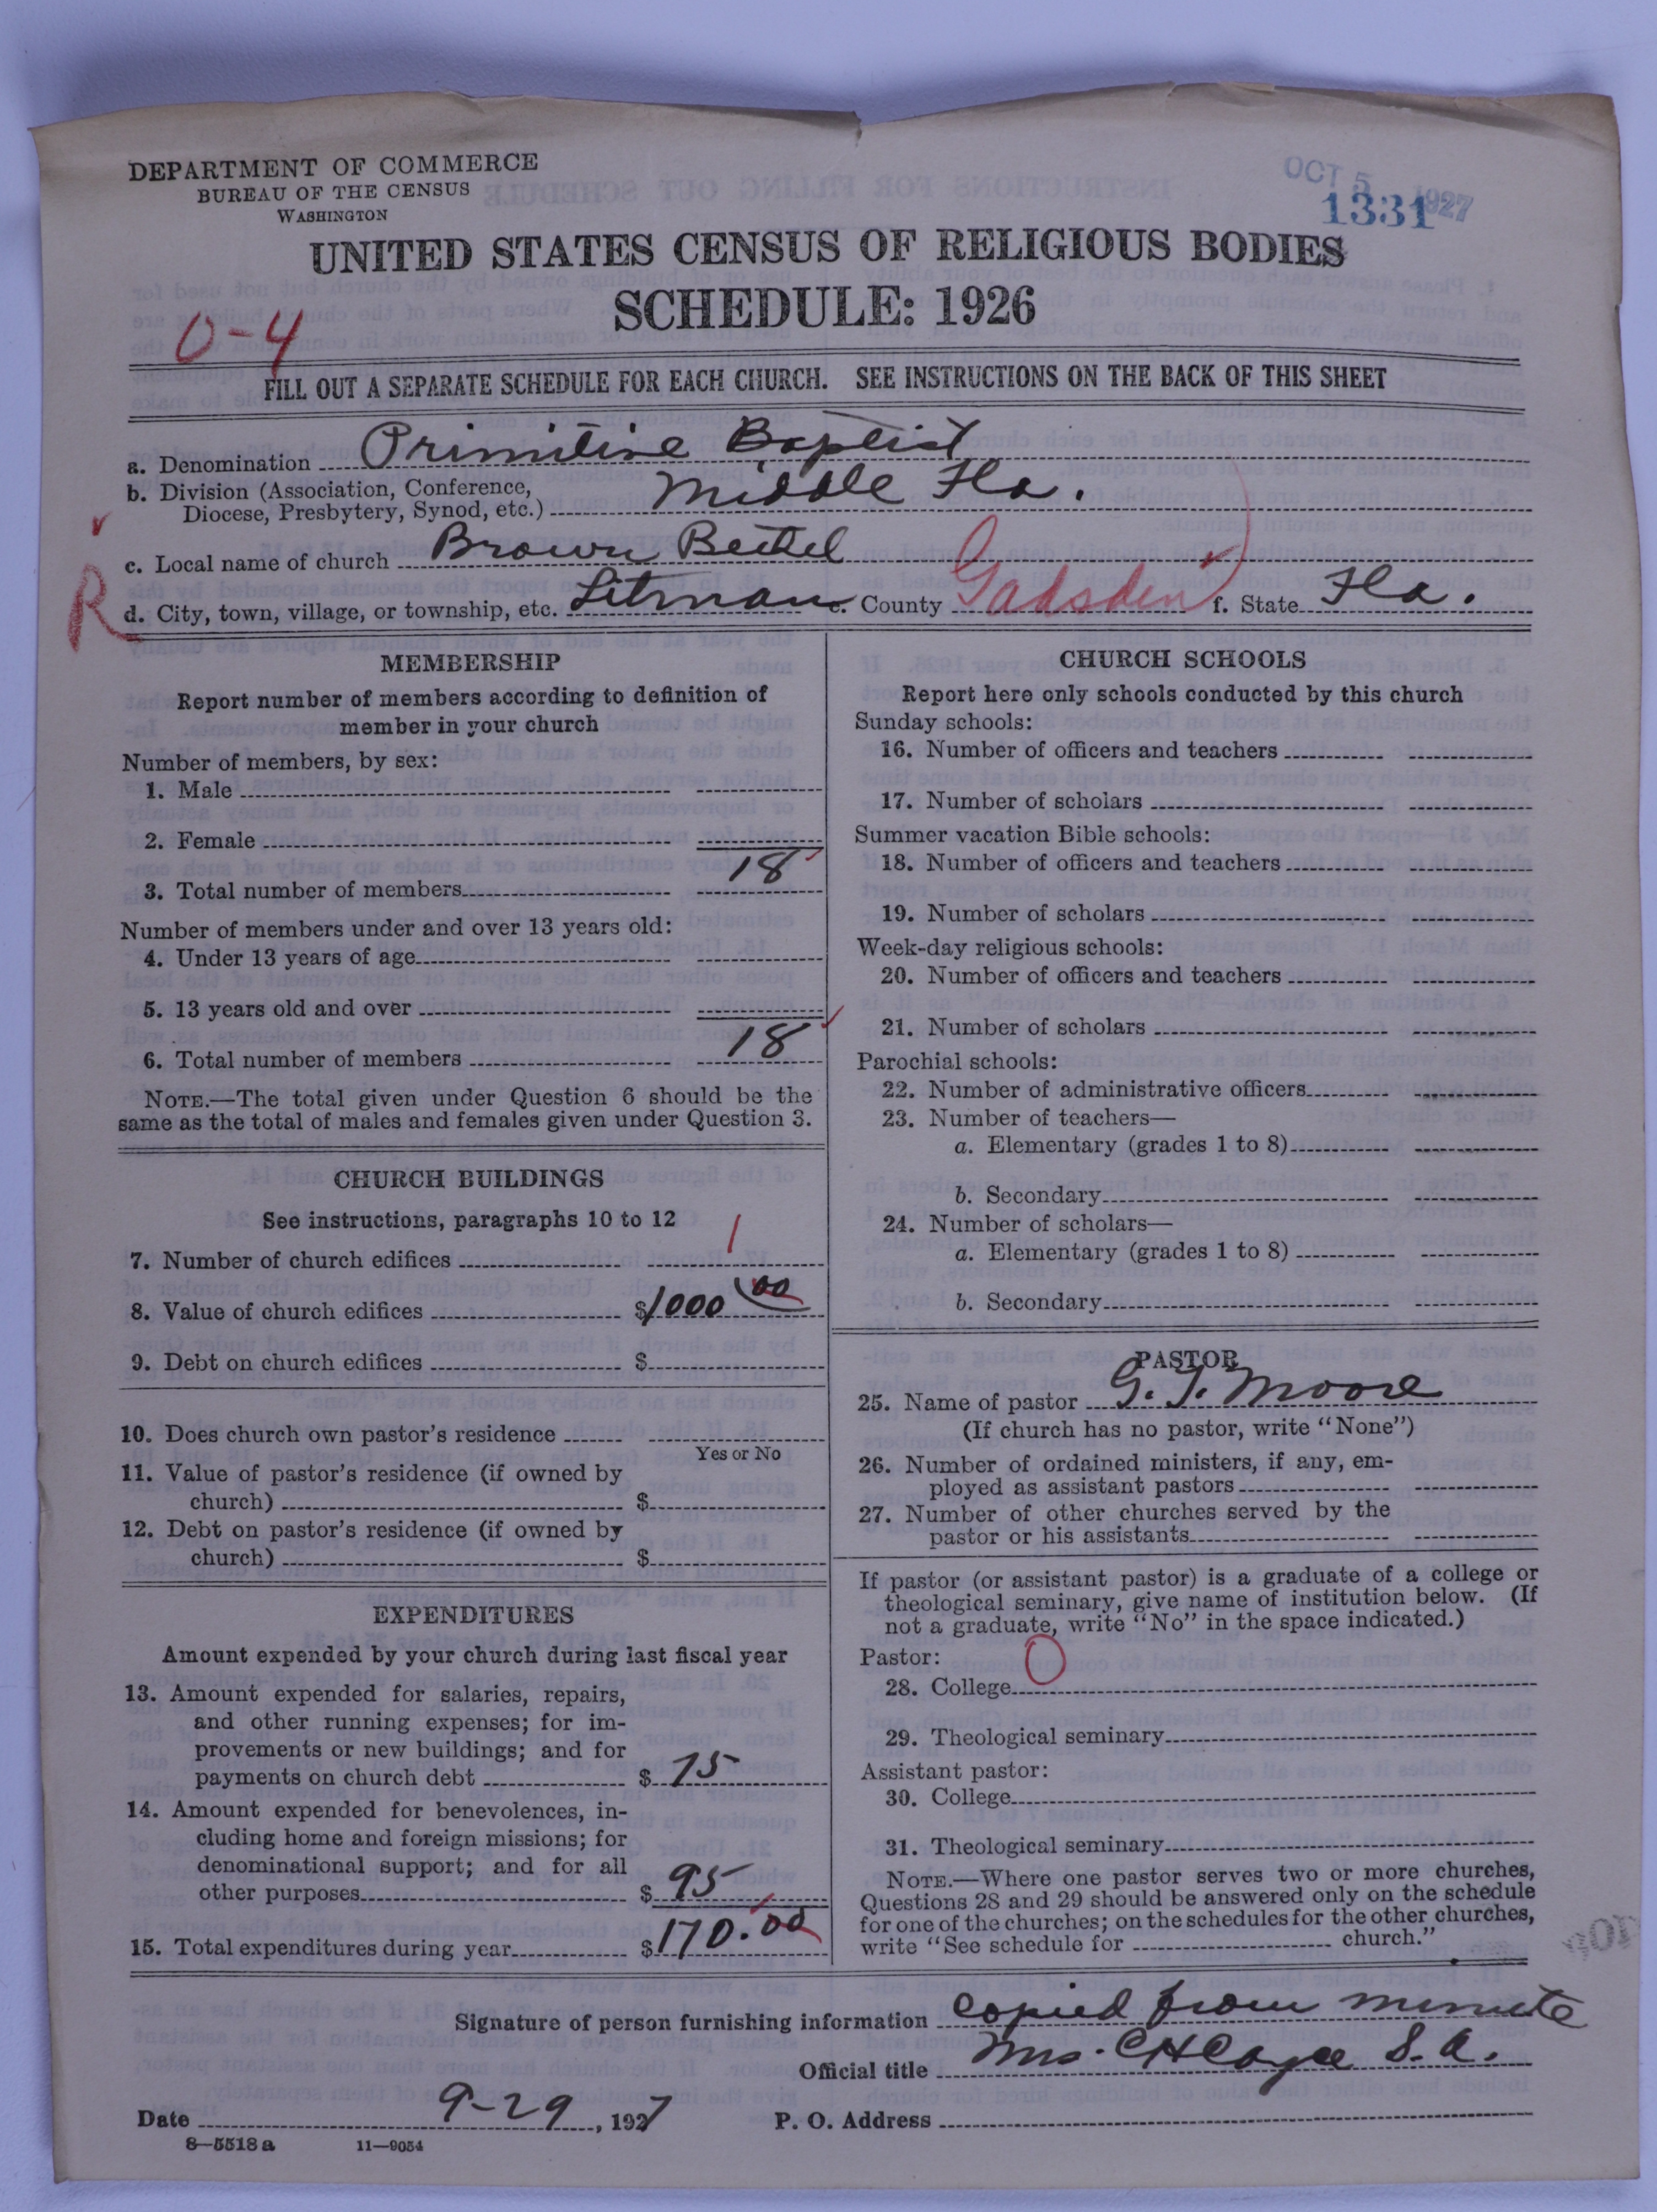 DEPARTMENT OF COMMERCE
BUREAU OF THE CENSUS
WASHINGTON
OCT 5 1927
1331
UNITED STATES CENSUS OF RELIGIOUS BODIES
SCHEDULE: 1926
0-4
FILL OUT A SEPARATE SCHEDULE FOR EACH CHURCH. SEE INSTRUCTIONS ON THE BACK OF THIS SHEET
a. Denomination Primitive Baptist
b. Division (Association, Conference,
Diocese, Presbytery, Synod, etc.) Middle Fla.
c. Local name of church Brown Bethel
R
d. City, town, village, or township, etc. Litman e. County Gadsden f. State Fla.
MEMBERSHIP
Report number of members according to definition of
member in your church
Number of members, by sex:
1. Male
2. Female
3. Total number of members 18
Number of members under and over 13 years old:
4. Under 13 years of age
5. 13 years old and over
6. Total number of members 18
NOTE.—The total given under Question 6 should be the
same as the total of males and females given under Question 3.
CHURCH BUILDINGS
See instructions, paragraphs 10 to 12
7. Number of church edifices 1
8. Value of church edifices $1000 00
9. Debt on church edifices $
10. Does church own pastor's residence
Yes or No
11. Value of pastor's residence (if owned by
church) $
12. Debt on pastor's residence (if owned by
church) $
EXPENDITURES
Amount expended by your church during last fiscal year
13. Amount expended for salaries, repairs,
and other running expenses; for im-
provements or new buildings; and for
payments on church debt $ 75
14. Amount expended for benevolences, in-
cluding home and foreign missions; for
denominational support; and for all
other purposes $ 95
15. Total expenditures during year $170.00
CHURCH SCHOOLS
Report here only schools conducted by this church
Sunday schools:
16. Number of officers and teachers
17. Number of scholars
Summer vacation Bible schools:
18. Number of officers and teachers
19. Number of scholars
Week-day religious schools:
20. Number of officers and teachers
21. Number of scholars
Parochial schools:
22. Number of administrative officers
23. Number of teachers—
a. Elementary (grades 1 to 8)
b. Secondary
24. Number of scholars—
a. Elementary (grades 1 to 8)
b. Secondary
PASTOR
25. Name of pastor G. T. Moore
(If church has no pastor, write "None")
26. Number of ordained ministers, if any, em-
ployed as assistant pastors
27. Number of other churches served by the
pastor or his assistants
If pastor (or assistant pastor) is a graduate of a college or
theological seminary, give name of institution below. (If
not a graduate, write "No" in the space indicated.)
Pastor: 0
28. College
29. Theological seminary
Assistant pastor:
30. College
31. Theological seminary
NOTE.—Where one pastor serves two or more churches,
Questions 28 and 29 should be answered only on the schedule
for one of the churches; on the schedules for the other churches,
write "See schedule for church."
Signature of person furnishing information copied from minute
Official title Mrs. C H Cayce S. A.
Date 9-29, 1927 P. O. Address
8—5518 a 11—9054